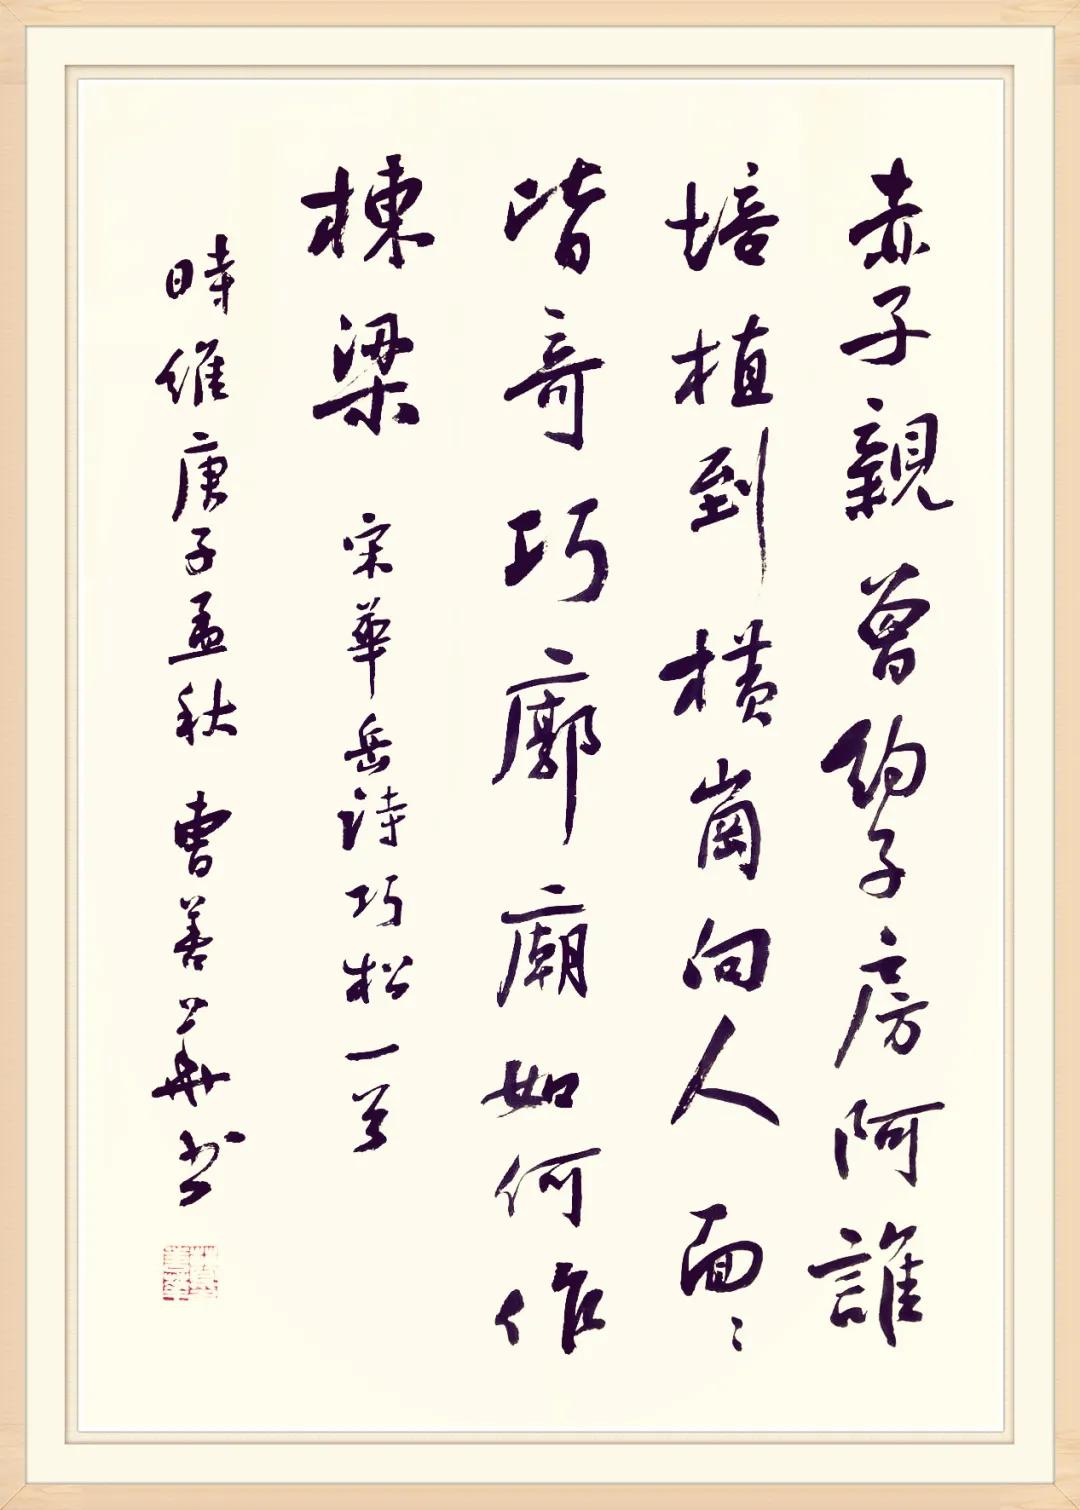 赤子親曾約子房阿誰
培植到橫崗向人面々
皆奇巧廓廟如何作
棟梁 宋華岳詩巧松一首
時維庚子孟秋 曹善華书